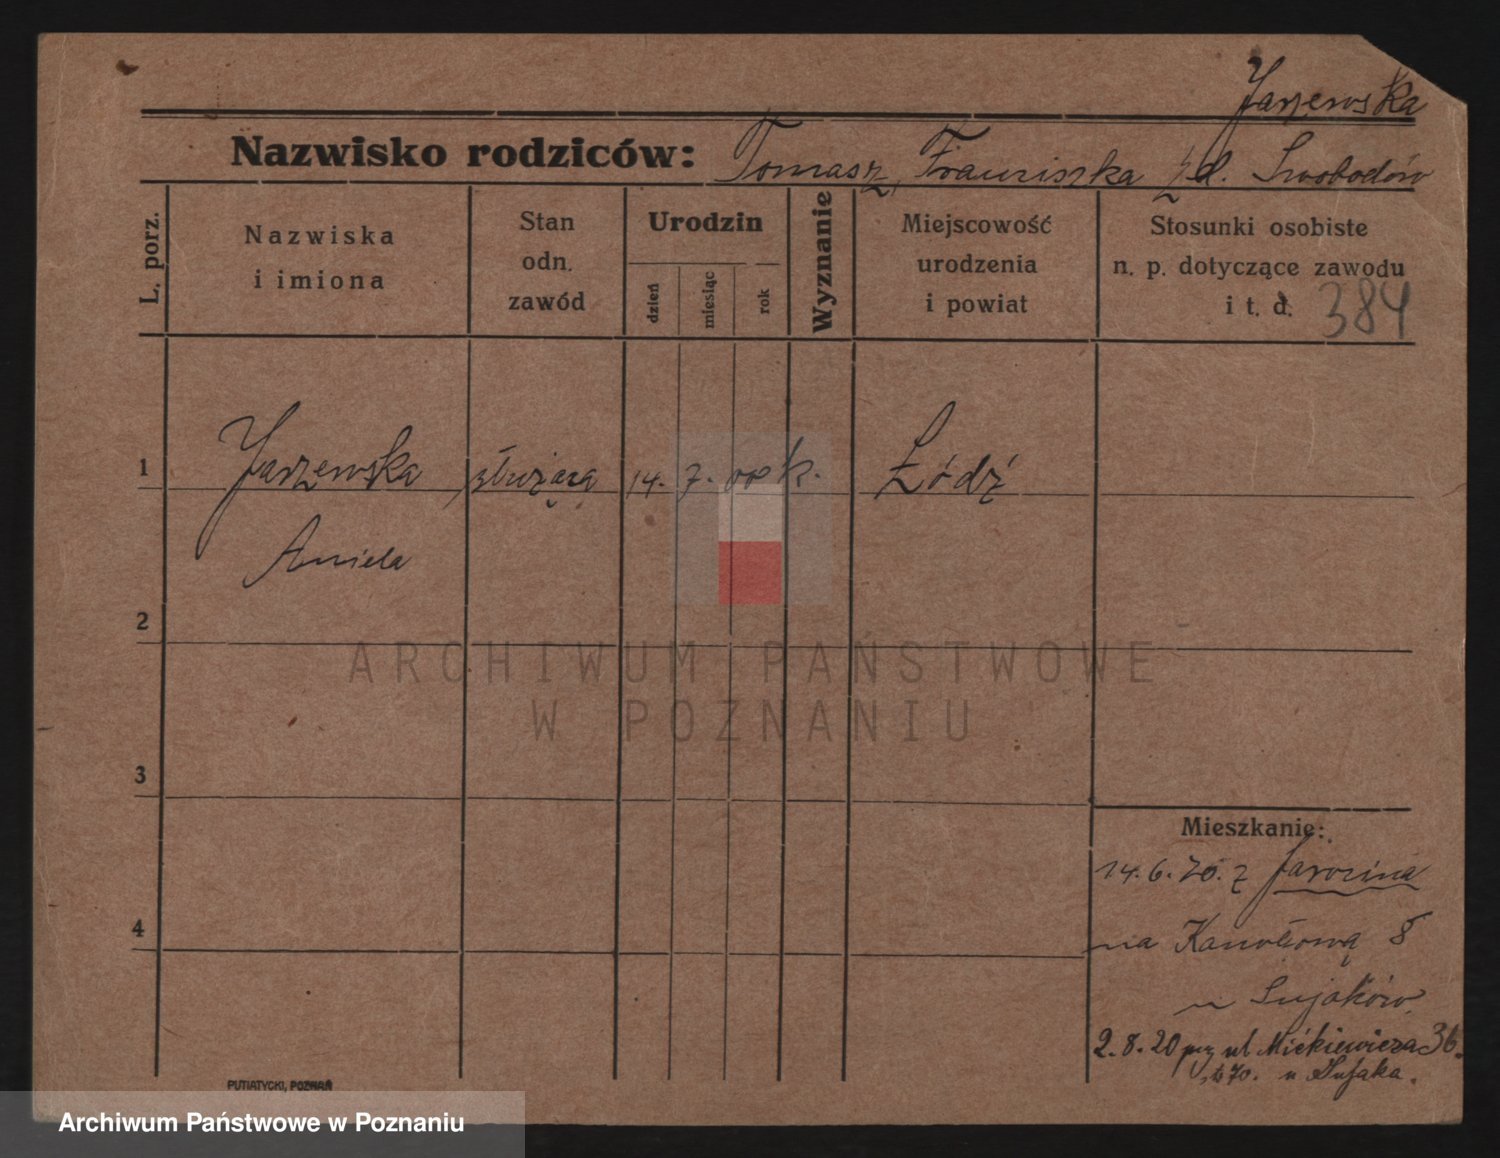 Jaszewska
Nazwisko rodziców: Tomasz, Franciszka z d. Swobodów
L. porz.
Nazwiska
i imiona
Stan
odn.
zawód
Urodzin
dzień
miesiąc
rok
Wyznanie
Miejscowość
urodzenia
i powiat
Stosunki osobiste
n. p. dotyczące zawodu
i t. d.
384
1 Jaszewska służąca 14. 7. 00 k. Łódź
Aniela
2
3
4
ARCHIWUM PAŃSTWOWE
W POZNANIU
Mieszkanie:
14.6.20. z Jarocina
na 8
u Sujaków
2.8.20 przy ul Mickiewicza 36.
u Sujaka.
PUTIATYCKI, POZNAŃ
Archiwum Państwowe w Poznaniu